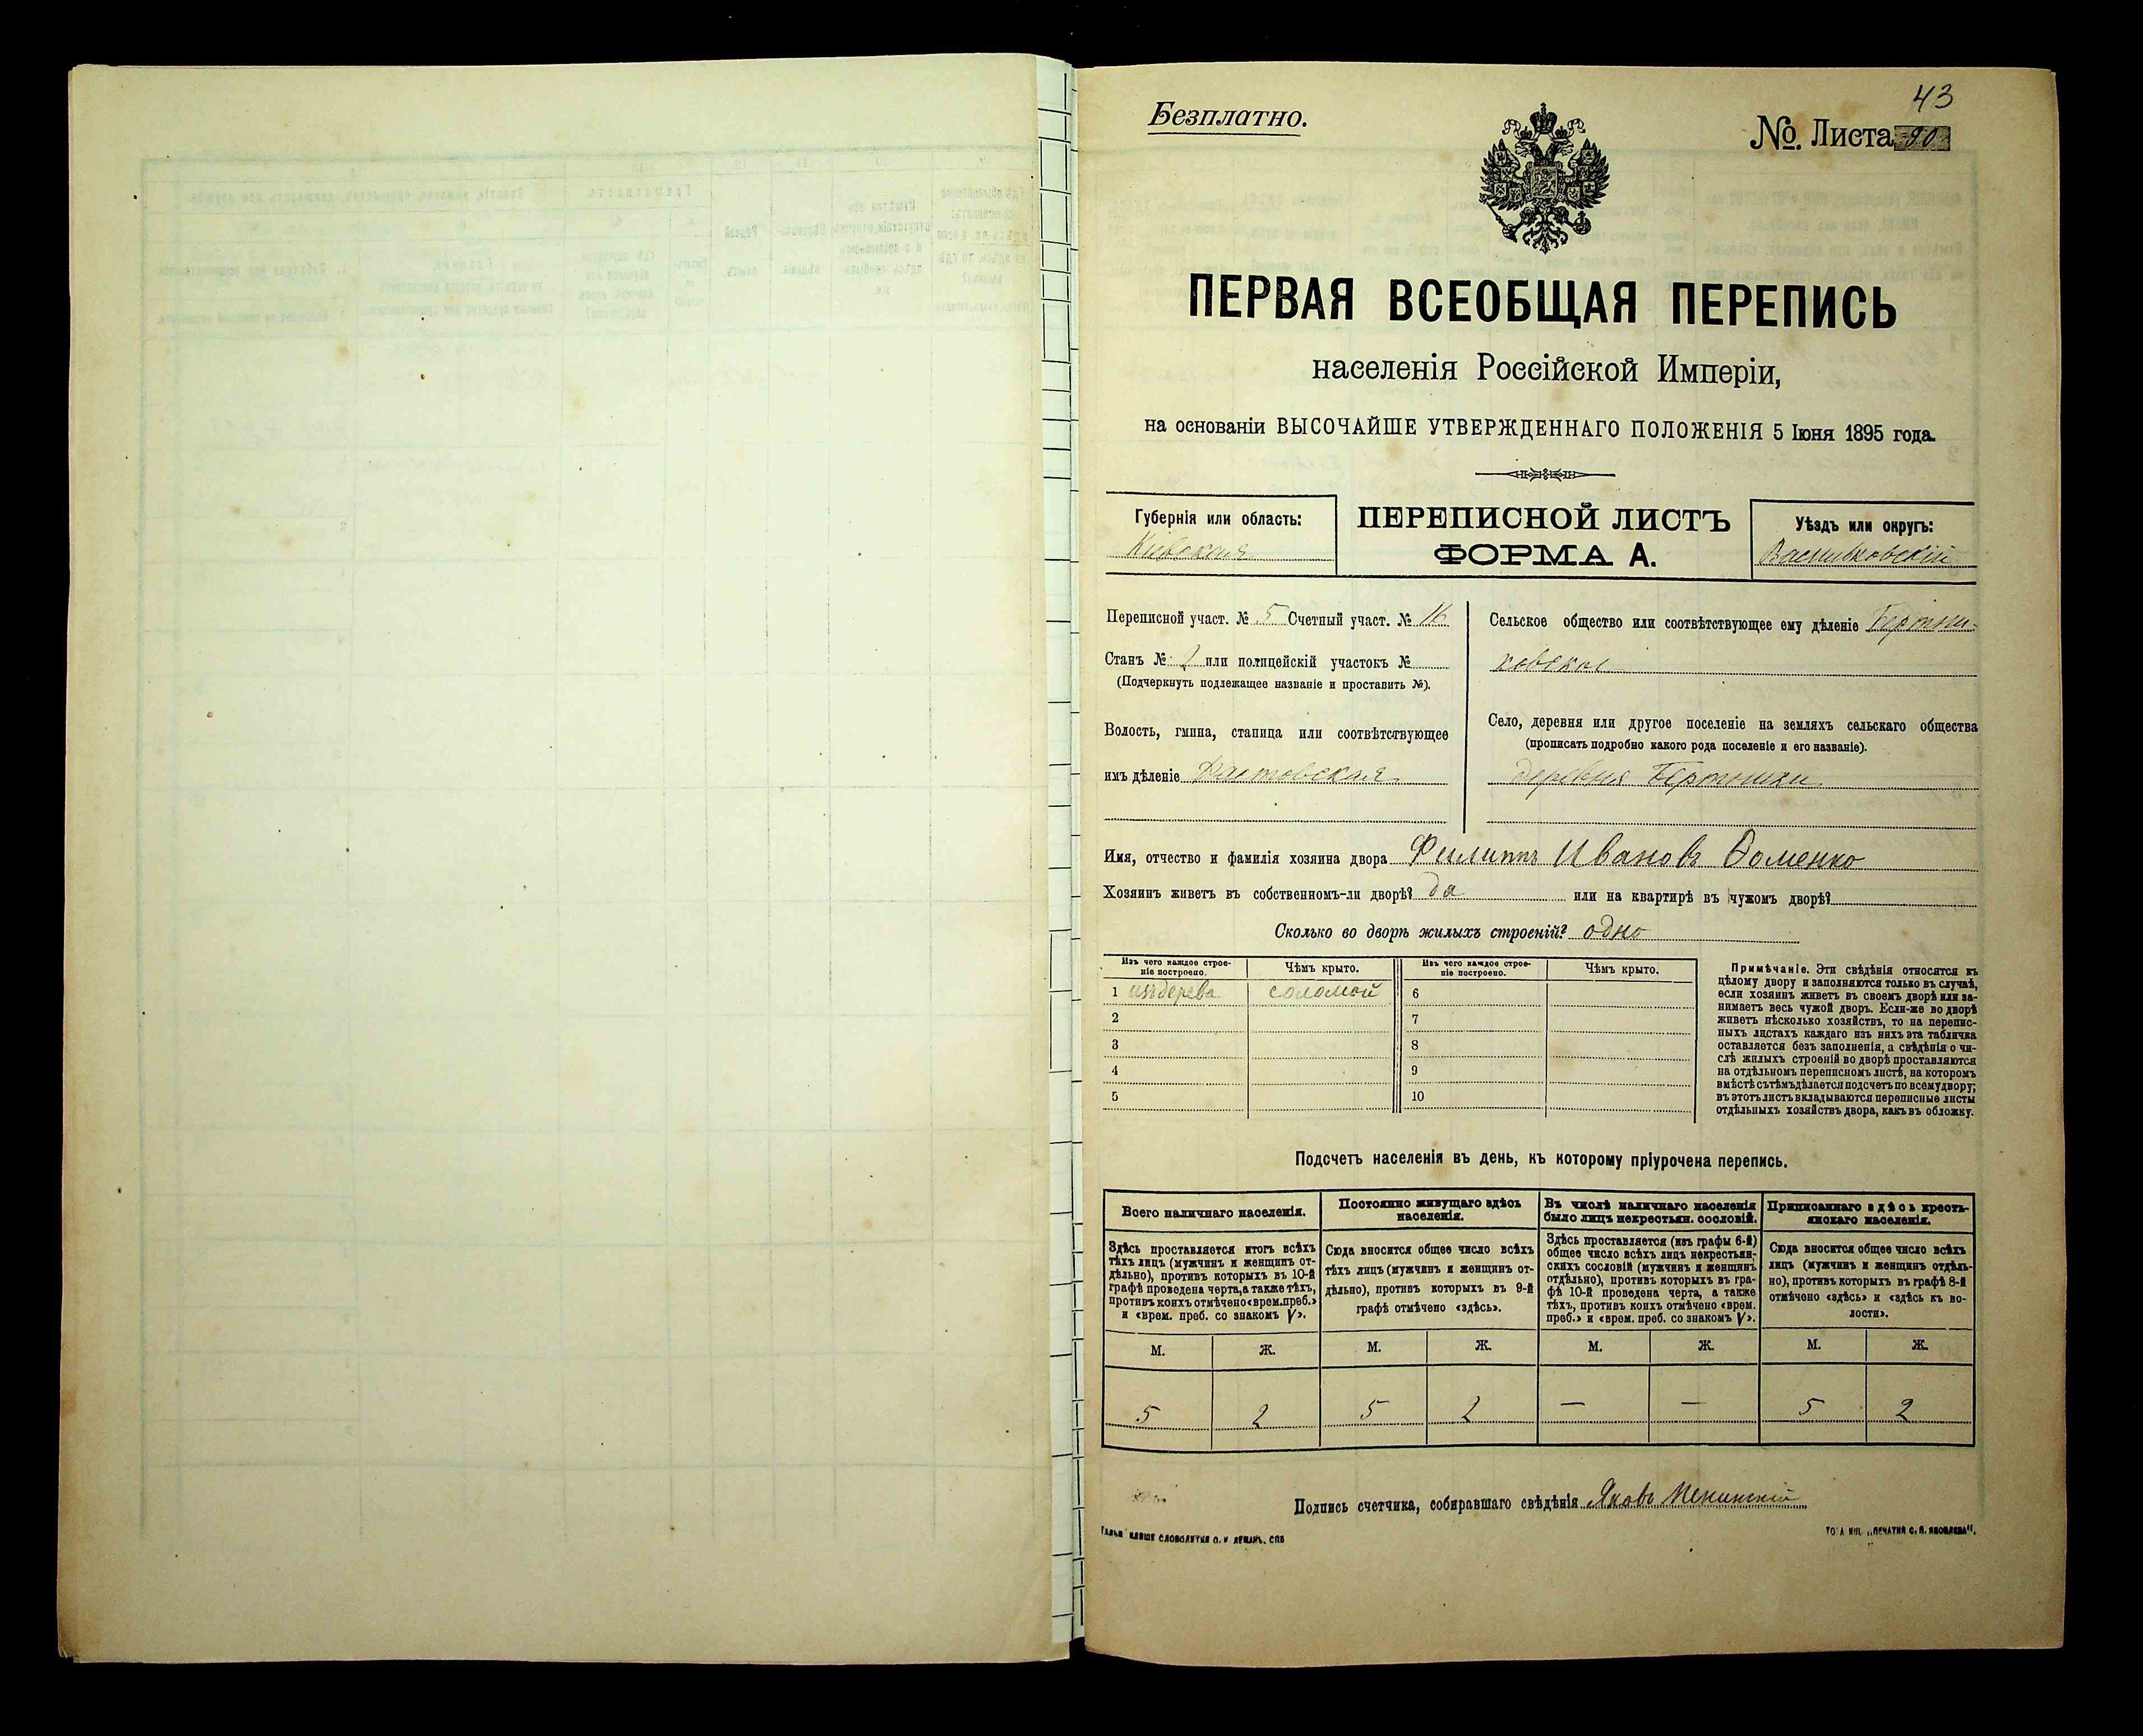 43
Безплатно.
№. Листа 20
ПЕРВАЯ ВСЕОБЩАЯ ПЕРЕПИСЬ
населенія Россійской Имперіи,
на основаніи ВЫСОЧАЙШЕ УТВЕРЖДЕННАГО ПОЛОЖЕНІЯ 5 Іюня 1895 года.
Губернія или область:
Кіевская
ПЕРЕПИСНОЙ ЛИСТЪ
ФОРМА А.
Уѣздъ или округъ:
Васильковскій
Переписной участ. № 5 Счетный участ. №
Станъ № 2 или полицейскій участокъ №
(Подчеркнуть подлежащее названіе и проставить №).
Волость, гмина, станица или соотвѣтствующее
имъ дѣленіе Фастовская
Сельское общество или соотвѣтствующее ему дѣленіе Бертни-
ковское
Село, деревня или другое поселеніе на земляхъ сельскаго общества
(прописать подробно какого рода поселеніе и его названіе).
деревня Бертники
Имя, отчество и фамилія хозяина двора Филиппъ Ивановъ Доменко
Хозяинъ живетъ въ собственномъ-ли дворѣ? да или на квартирѣ въ чужомъ дворѣ?
Сколько во дворѣ жилыхъ строеній? одно
Изъ чего каждое строе-
ніе построено.
Чѣмъ крыто.
Изъ чего каждое строе-
ніе построено.
Чѣмъ крыто.
1 изъ дерева соломой 6
2 7
3 8
4 9
5 10
Примѣчаніе. Эти свѣдѣнія относятся къ
цѣлому двору и заполняются только въ случаѣ,
если хозяинъ живетъ въ своемъ дворѣ или за-
нимаетъ весь чужой дворъ. Если-же во дворѣ
живетъ нѣсколько хозяйствъ, то на перепис-
ныхъ листахъ каждаго изъ нихъ эта табличка
оставляется безъ заполненія, а свѣдѣнія о чи-
слѣ жилыхъ строеній во дворѣ проставляются
на отдѣльномъ переписномъ листѣ, на которомъ
вмѣстѣ съ тѣмъ дѣлается подсчетъ по всему двору;
въ этотъ листъ вкладываются переписные листы
отдѣльныхъ хозяйствъ двора, какъ въ обложку.
Подсчетъ населенія въ день, къ которому пріурочена перепись.
Всего наличнаго населенія.
Здѣсь проставляется итогъ всѣхъ
тѣхъ лицъ (мужчинъ и женщинъ от-
дѣльно), противъ которыхъ въ 10-й
графѣ проведена черта, а также тѣхъ,
противъ коихъ отмѣчено «врем. преб.»
и «врем. преб. со знакомъ V».
Постоянно живущаго здѣсь
населенія.
Сюда вносится общее число всѣхъ
тѣхъ лицъ (мужчинъ и женщинъ от-
дѣльно), противъ которыхъ въ 9-й
графѣ отмѣчено «здѣсь».
Въ числѣ наличнаго населенія
было лицъ некрестьян. сословій.
Здѣсь проставляется (изъ графы 6-й)
общее число всѣхъ лицъ некрестьян-
скихъ сословій (мужчинъ и женщинъ
отдѣльно), противъ которыхъ въ гра-
фѣ 10-й проведена черта, а также
тѣхъ, противъ коихъ отмѣчено «врем.
преб.» и «врем. преб. со знакомъ V».
Приписаннаго здѣсь кресть-
янскаго населенія.
Сюда вносится общее число всѣхъ
лицъ (мужчинъ и женщинъ отдѣль-
но), противъ которыхъ въ графѣ 8-й
отмѣчено «здѣсь» и «здѣсь къ во-
лости».
М. Ж. М. Ж. М. Ж. М. Ж.
5 2 5 2 — — 5 2
Подпись счетчика, собиравшаго свѣдѣнія Яковъ
СЛОВОЛИТНЯ О. И. ЛЕМАНЪ. СПБ
„ПЕЧАТНЯ С. П. ЯКОВЛЕВА".